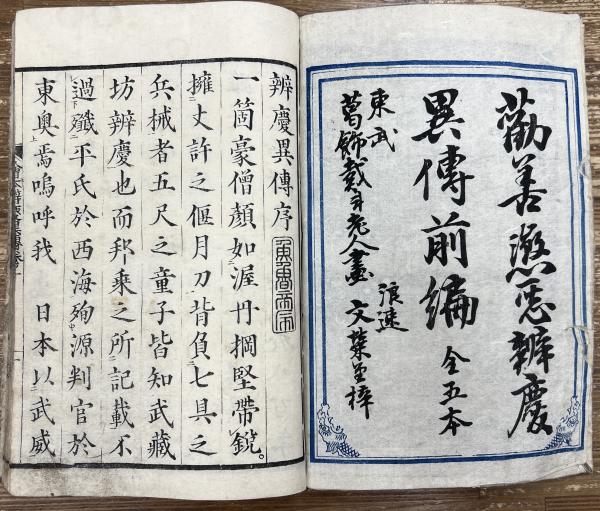 勸善懲悪辨慶
異傳前編 全五本
東武
葛飾戴斗老人畫
浪速
文榮堂梓
辨慶異傳序
一箇豪僧顔如渥丹擐堅帶鋭。
擁丈許之偃月刀背負七具之
兵械者五尺之童子皆知武藏
坊辨慶也而邦乘之所記載不
過殲平氏於西海殉源判官於
東奥焉嗚呼我 日本以武威